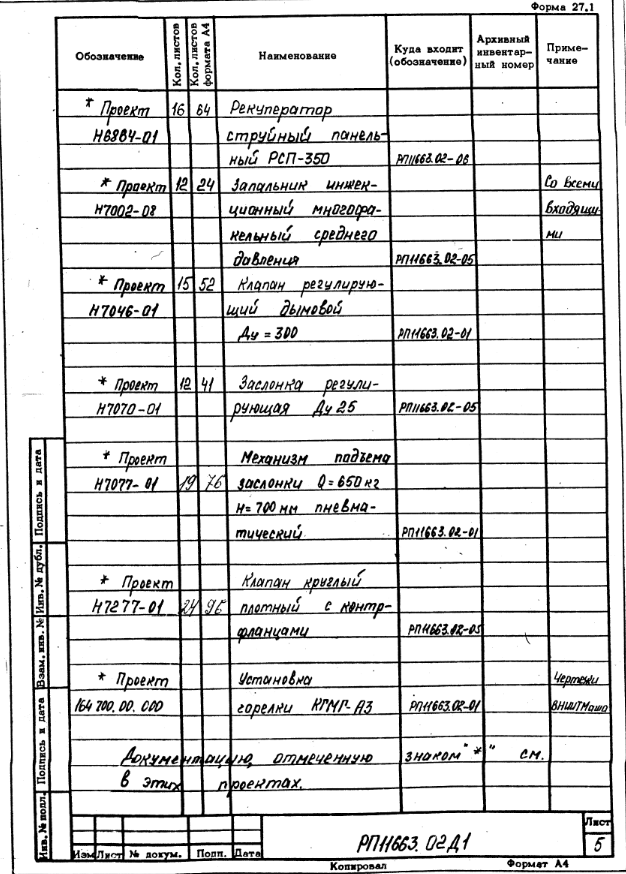 Форма 27.1
Обозначение Кол. листов Кол. листов формата А4 Наименование Куда входит (обозначение) Архивный инвентар-ный номер Приме-чание
* Проект 16 64 Рекуператор
Н6884-01 струйный панель-
ный РСП-350 РП11663.02-06
* Проект 12 24 Запальник инжек- Со всеми
Н7002-08 ционный многофа- входящи-
кельный среднего ми
давления РП11663.02-05
* Проект 15 52 Клапан регулирую-
Н7046-01 щий дымовой
Ду = 300 РП11663.02-01
* Проект 12 41 Заслонка регули-
Н7070-01 рующая Ду 25 РП11663.02-05
* Проект Механизм подъема
Н7077-01 19 76 заслонки Q = 650 кг
Н = 700 мм пневма-
тический РП11663.02-01
* Проект Клапан круглый
Н7277-01 24 96 плотный с контр-
фланцами РП11663.02-05
* Проект Установка Чертежи
164700.00.000 горелки КГМГ-А3 РП11663.02-01
Документацию, отмеченную знаком "*" см.
в этих проектах.
Инв. № подл. Подпись и дата Взам. инв. № Инв. № дубл. Подпись и дата
Изм Лист № докум. Подп. Дата
РП11663.02Д1
Лист
5
Копировал Формат А4